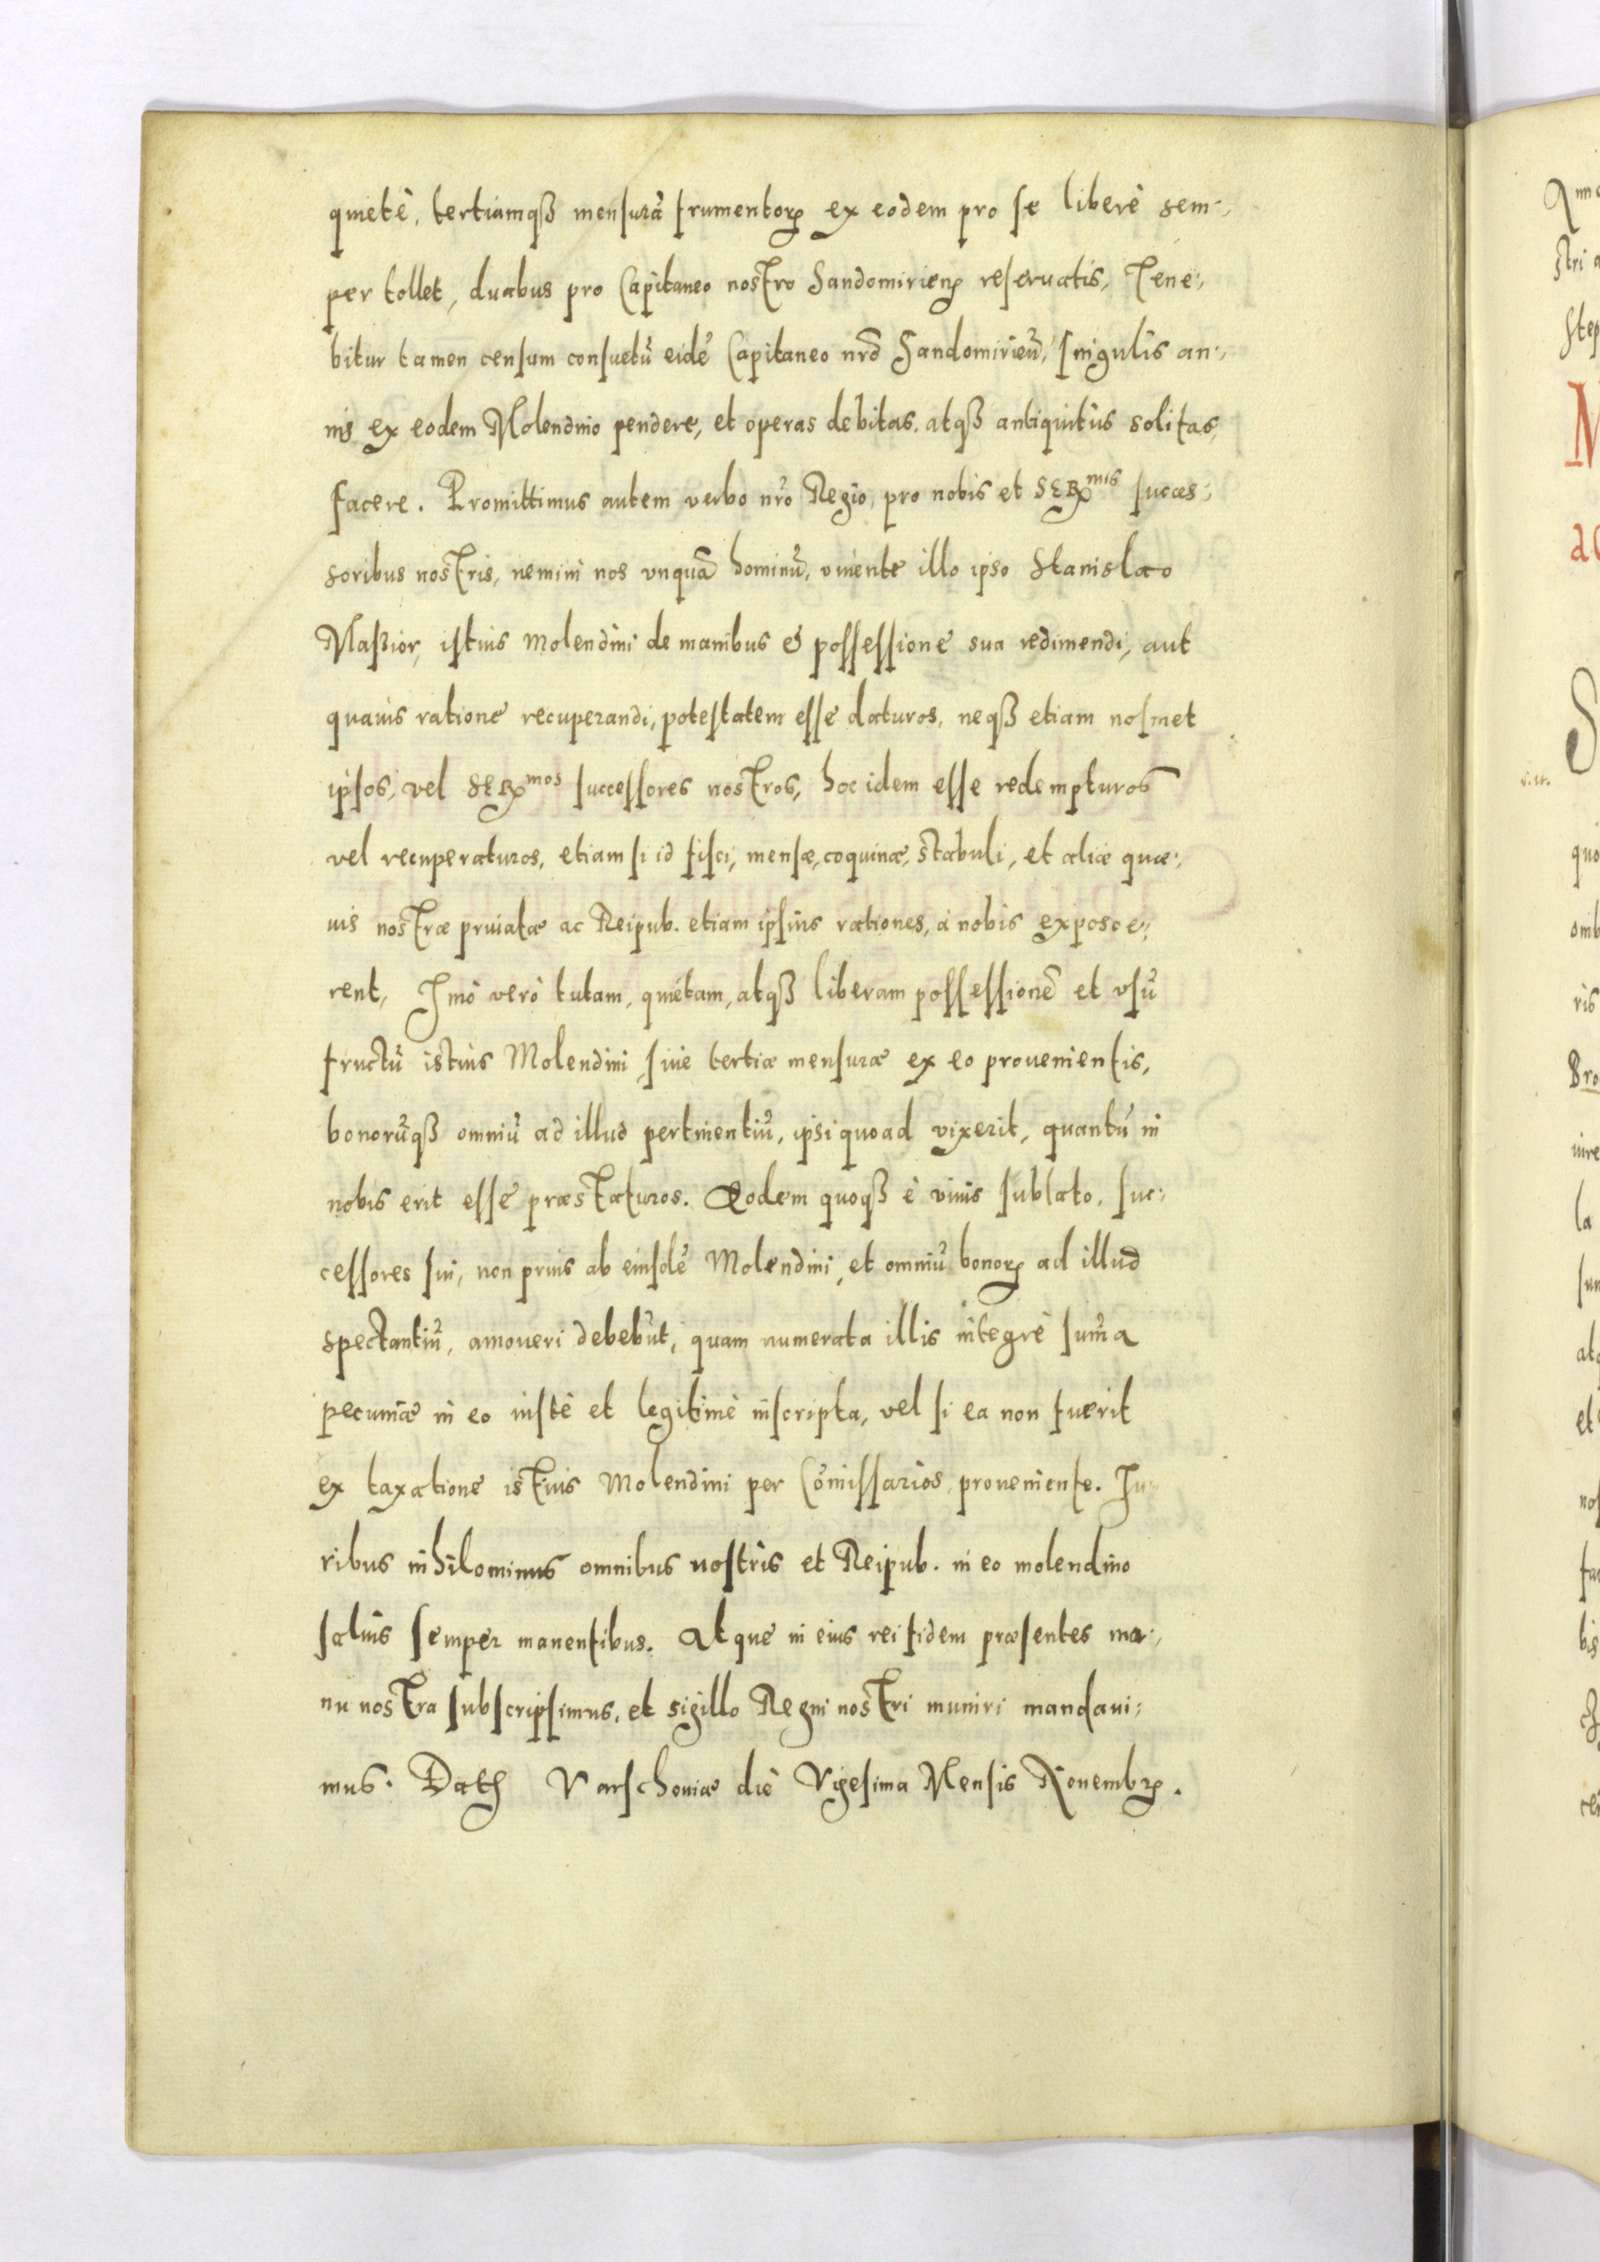 quietè, tertiamqꝫ mensurã frumentorꝝ ex eodem pro se liberè sem-,
per tollet, duabus pro Capitaneo nostro Sandomirienꝭ reseruatis, Tene:,
bitur tamen censum consuetũ eidẽ Capitaneo nrõ Sandomirieñ, singulis an:,
nis ex eodem Molendino pendere, et operas debitas, atqꝫ antiquitùs solitas,
facere. Promittimus autem verbo nrõ Regio, pro nobis et SERmis succes:,
soribus nostris, nemini nos vnquã hominũ, viuente illo ipso Stanislao
Maßior, istius Molendini de manibus & possessione sua redimendi, aut
quauis ratione recuperandi, potestatem esse daturos, neqꝫ etiam nosmet
ipsos, vel SERmos successores nostros, hoc idem esse redempturos
vel recuperaturos, etiam si id fisci, mensæ, coquinæ, stabuli, et aliæ quæ:,
uis nostræ priuatæ ac Reipub. etiam ipsius rationes, à nobis exposce:,
rent, Imò verò tutam, quietam, atqꝫ liberam possessionẽ et vsũ
fructũ istius Molendini, siue tertiæ mensuræ ex eo prouenientis,
bonorũqꝫ omniũ ad illud pertinentiũ, ipsi quoad vixerit, quantũ in
nobis erit esse præstaturos. Eodem quoqꝫ è viuis sublato, suc:,
cessores sui, non prius ab eiusdẽ Molendini, et omniũ bonorꝝ ad illud
spectantiũ, amoueri debebũt, quam numerata illis integrè sum̃a
pecuniæ in eo iustè et legitimè inscripta, vel si ea non fuerit
ex taxatione istius Molendini per Cõmissarios proueniente. Iu-
ribus nihilominus omnibus nostris et Reipub. in eo molendino
saluis semper manentibus. Atque in eius rei fidem præsentes ma:,
nu nostra subscripsimus, et sigillo Regni nostri muniri mandaui:,
mus. Datꝭ Varschouiæ diè Vigesima Mensis Nouembrꝭ.